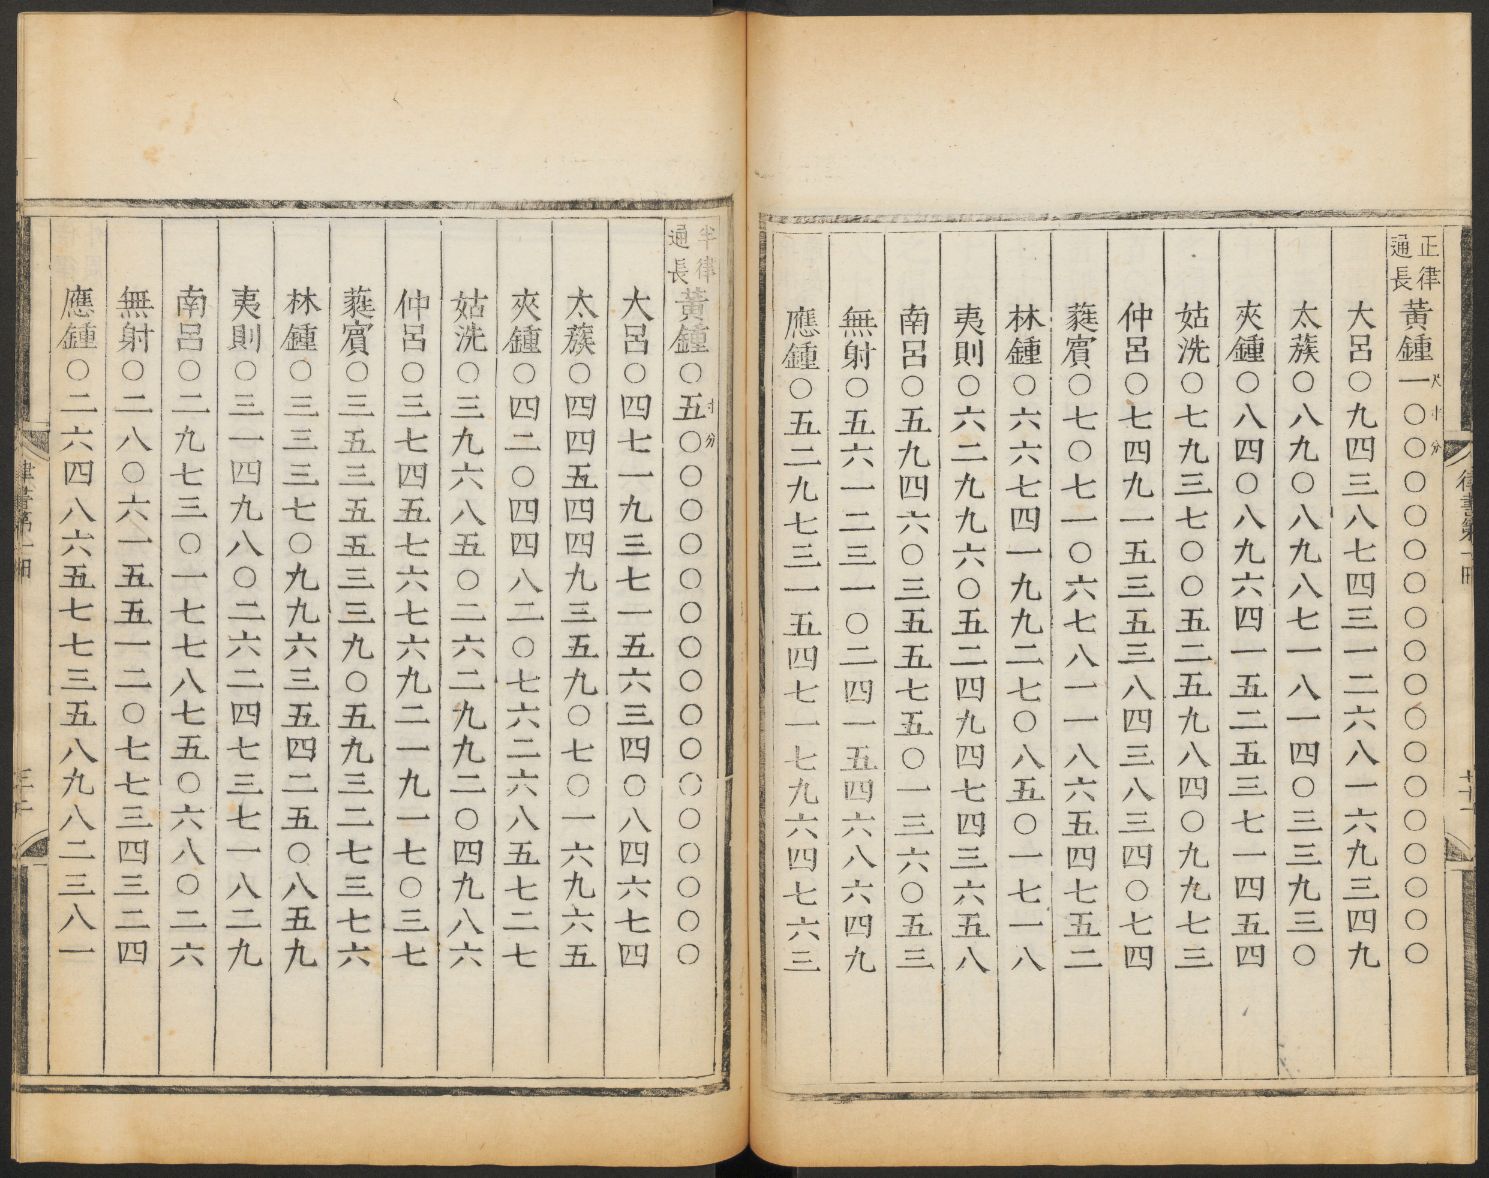 正律通長黃鍾一尺〇寸〇分〇〇〇〇〇〇〇〇〇〇〇〇〇〇〇
大呂〇九四三八七四三一二六八一六九三四九
太蔟〇八九〇八九八七一八一四〇三三九三〇
夾鍾〇八四〇八九六四一五二五三七一四五四
姑洗〇七九三七〇〇五二五九八四〇九九七三
仲呂〇七四九一五三五三八四三八三四〇七四
蕤賓〇七〇七一〇六七八一一八六五四七五二
林鍾〇六六七四一九九二七〇八五〇一七一八
夷則〇六二九九六〇五二四九四七四三六五八
南呂〇五九四六〇三五五七五〇一三六〇五三
無射〇五六一二三一〇二四一五四六八六四九
應鍾〇五二九七三一五四七一七九六四七六三
半律通長黃鍾〇五寸〇分〇〇〇〇〇〇〇〇〇〇〇〇〇〇〇
大呂〇四七一九三七一五六三四〇八四六七四
太蔟〇四四五四四九三五九〇七〇一六九六五
夾鍾〇四二〇四四八二〇七六二六八五七二七
姑洗〇三九六八五〇二六二九九二〇四九八六
仲呂〇三七四五七六七六九二一九一七〇三七
蕤賓〇三五三五五三三九〇五九三二七三七六
林鍾〇三三三七〇九九六三五四二五〇八五九
夷則〇三一四九八〇二六二四七三七一八二九
南呂〇二九七三〇一七七八七五〇六八〇二六
無射〇二八〇六一五五一二〇七七三四三二四
應鍾〇二六四八六五七七三五八九八二三八一